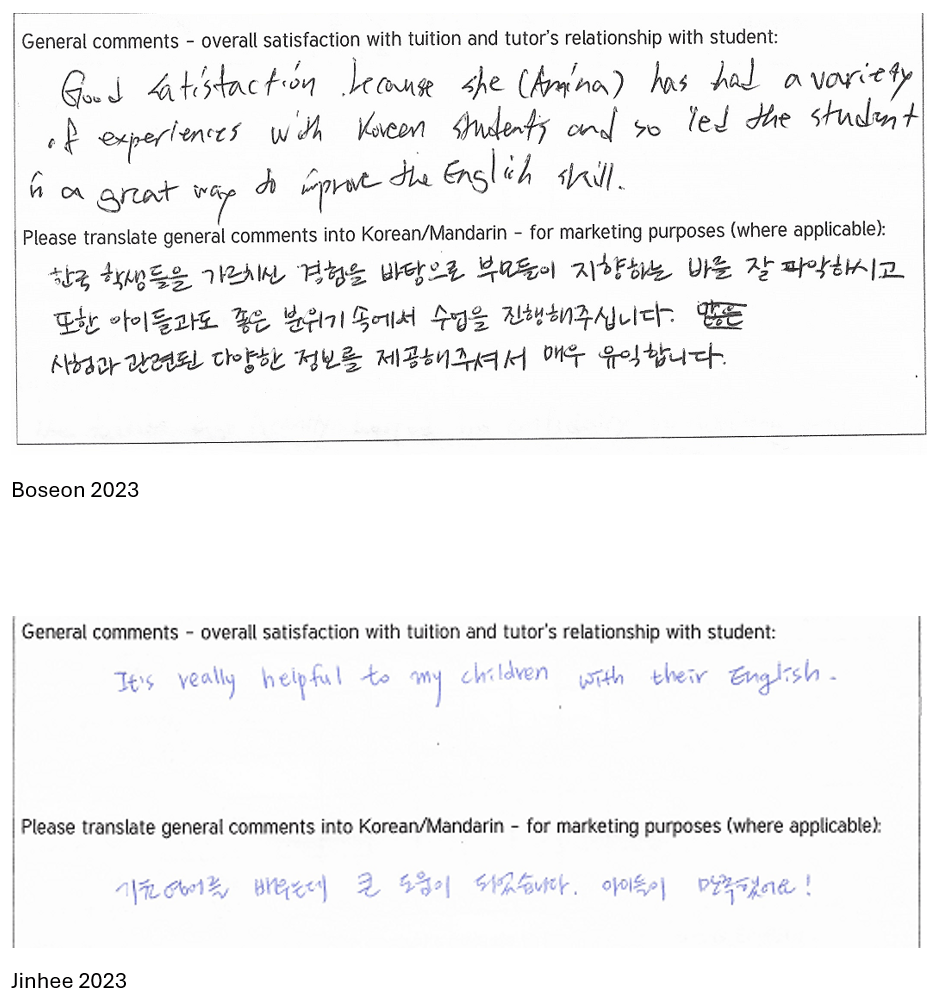 General comments – overall satisfaction with tuition and tutor's relationship with student:
Good satistaction because she (Amina) has had a variety
of experiences with Koreen students and so led the student
in a great way to improve the English skill.
Please translate general comments into Korean/Mandarin – for marketing purposes (where applicable):
한국 학생들을 가르치신 경험을 바탕으로 부모들이 지향하는 바를 잘 파악하시고
또한 아이들과도 좋은 분위기 속에서 수업을 진행해주십니다.
시험과 관련된 다양한 정보를 제공해주셔서 매우 유익합니다.
Boseon 2023
General comments – overall satisfaction with tuition and tutor's relationship with student:
It's really helpful to my children with their English.
Please translate general comments into Korean/Mandarin – for marketing purposes (where applicable):
기초영어를 배우는데 큰 도움이 되었습니다. 아이들이 만족했어요!
Jinhee 2023